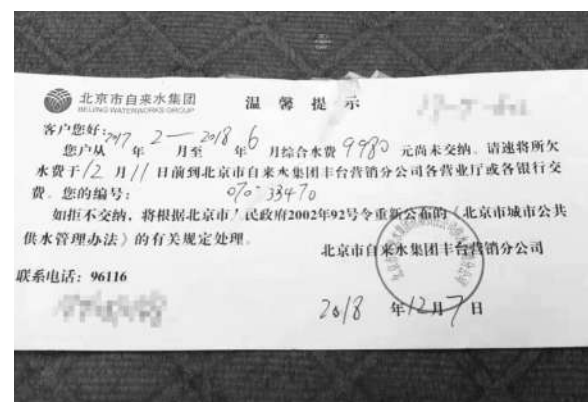 北京市自来水集团
BEIJING WATERWORKS GROUP
温馨提示
客户您好:
您户从2017年2月至2018年6月综合水费9980元尚未交纳。请速将所欠
水费于12月11日前到北京市自来水集团丰台营销分公司各营业厅或各银行交
费。您的编号:070-33470
如拒不交纳,将根据北京市人民政府2002年92号令重新公布的《北京市城市公共
供水管理办法》的有关规定处理。
北京市自来水集团丰台营销分公司
联系电话:96116
2018年12月7日